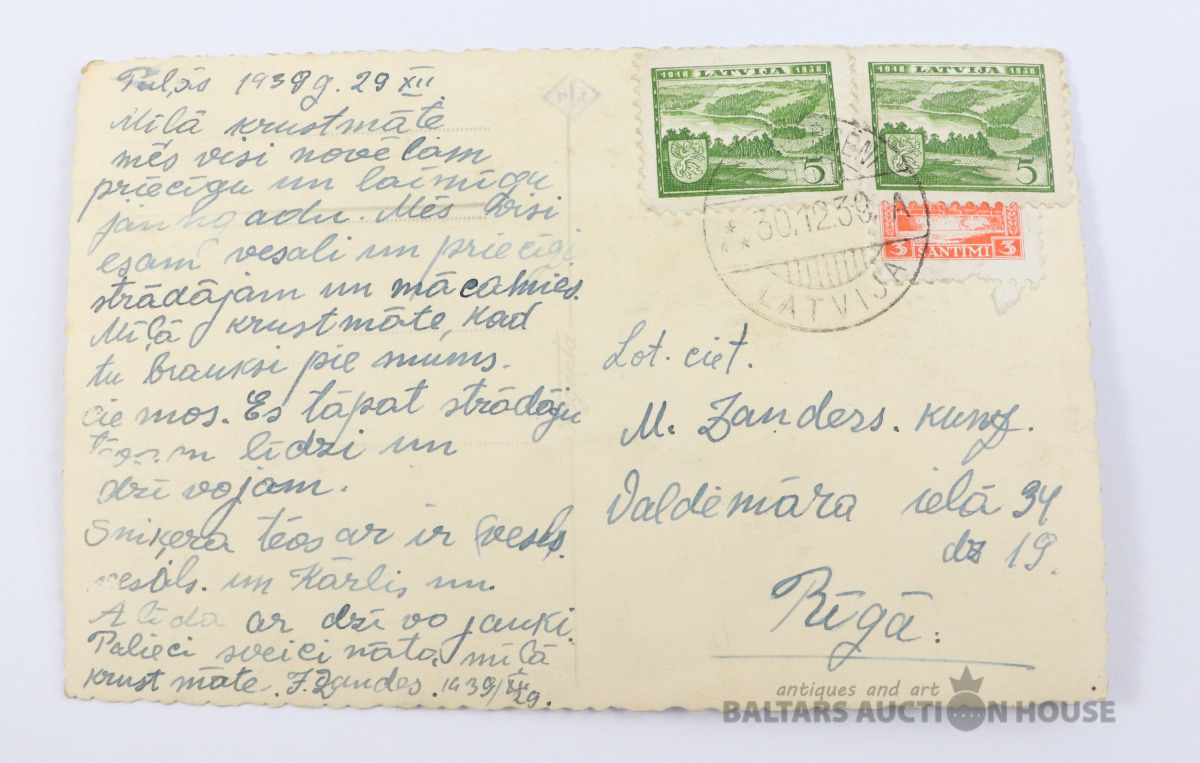 1939 g. 29 XII.
Mīļā krustmāte
mēs visi novēlam
priecīgu un laimīgu
jaungadu. Mēs visi
esam veseli un priecīgi
strādājam un mācamies.
Mīļā krustmāte, kad
tu brauksi pie mums.
ciemos. Es tāpat strādāju
līdzi un
dzīvojam.
Sniķera tēos ar ir vesels.
vesels. un Kārlis un.
Alīda ar dzīvo jauki.
Palieci sveicināta mīļā
krustmāte. 1939/XII 29.
1918 LATVIJA 1938
5
1918 LATVIJA 1938
5
3 SANTIMI 3
30.12.39. A
LATVIJA
Lot. ciet.
M. Zanders. kung.
Valdemāra ielā 34
dz 19.
Rīgā.
antiques and art
BALTARS AUCTION HOUSE